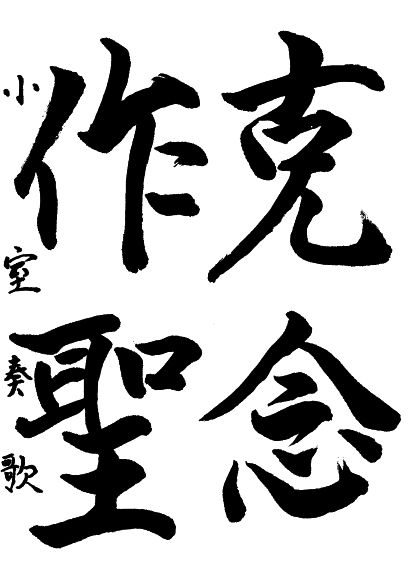 克念
作聖
小室奏歌